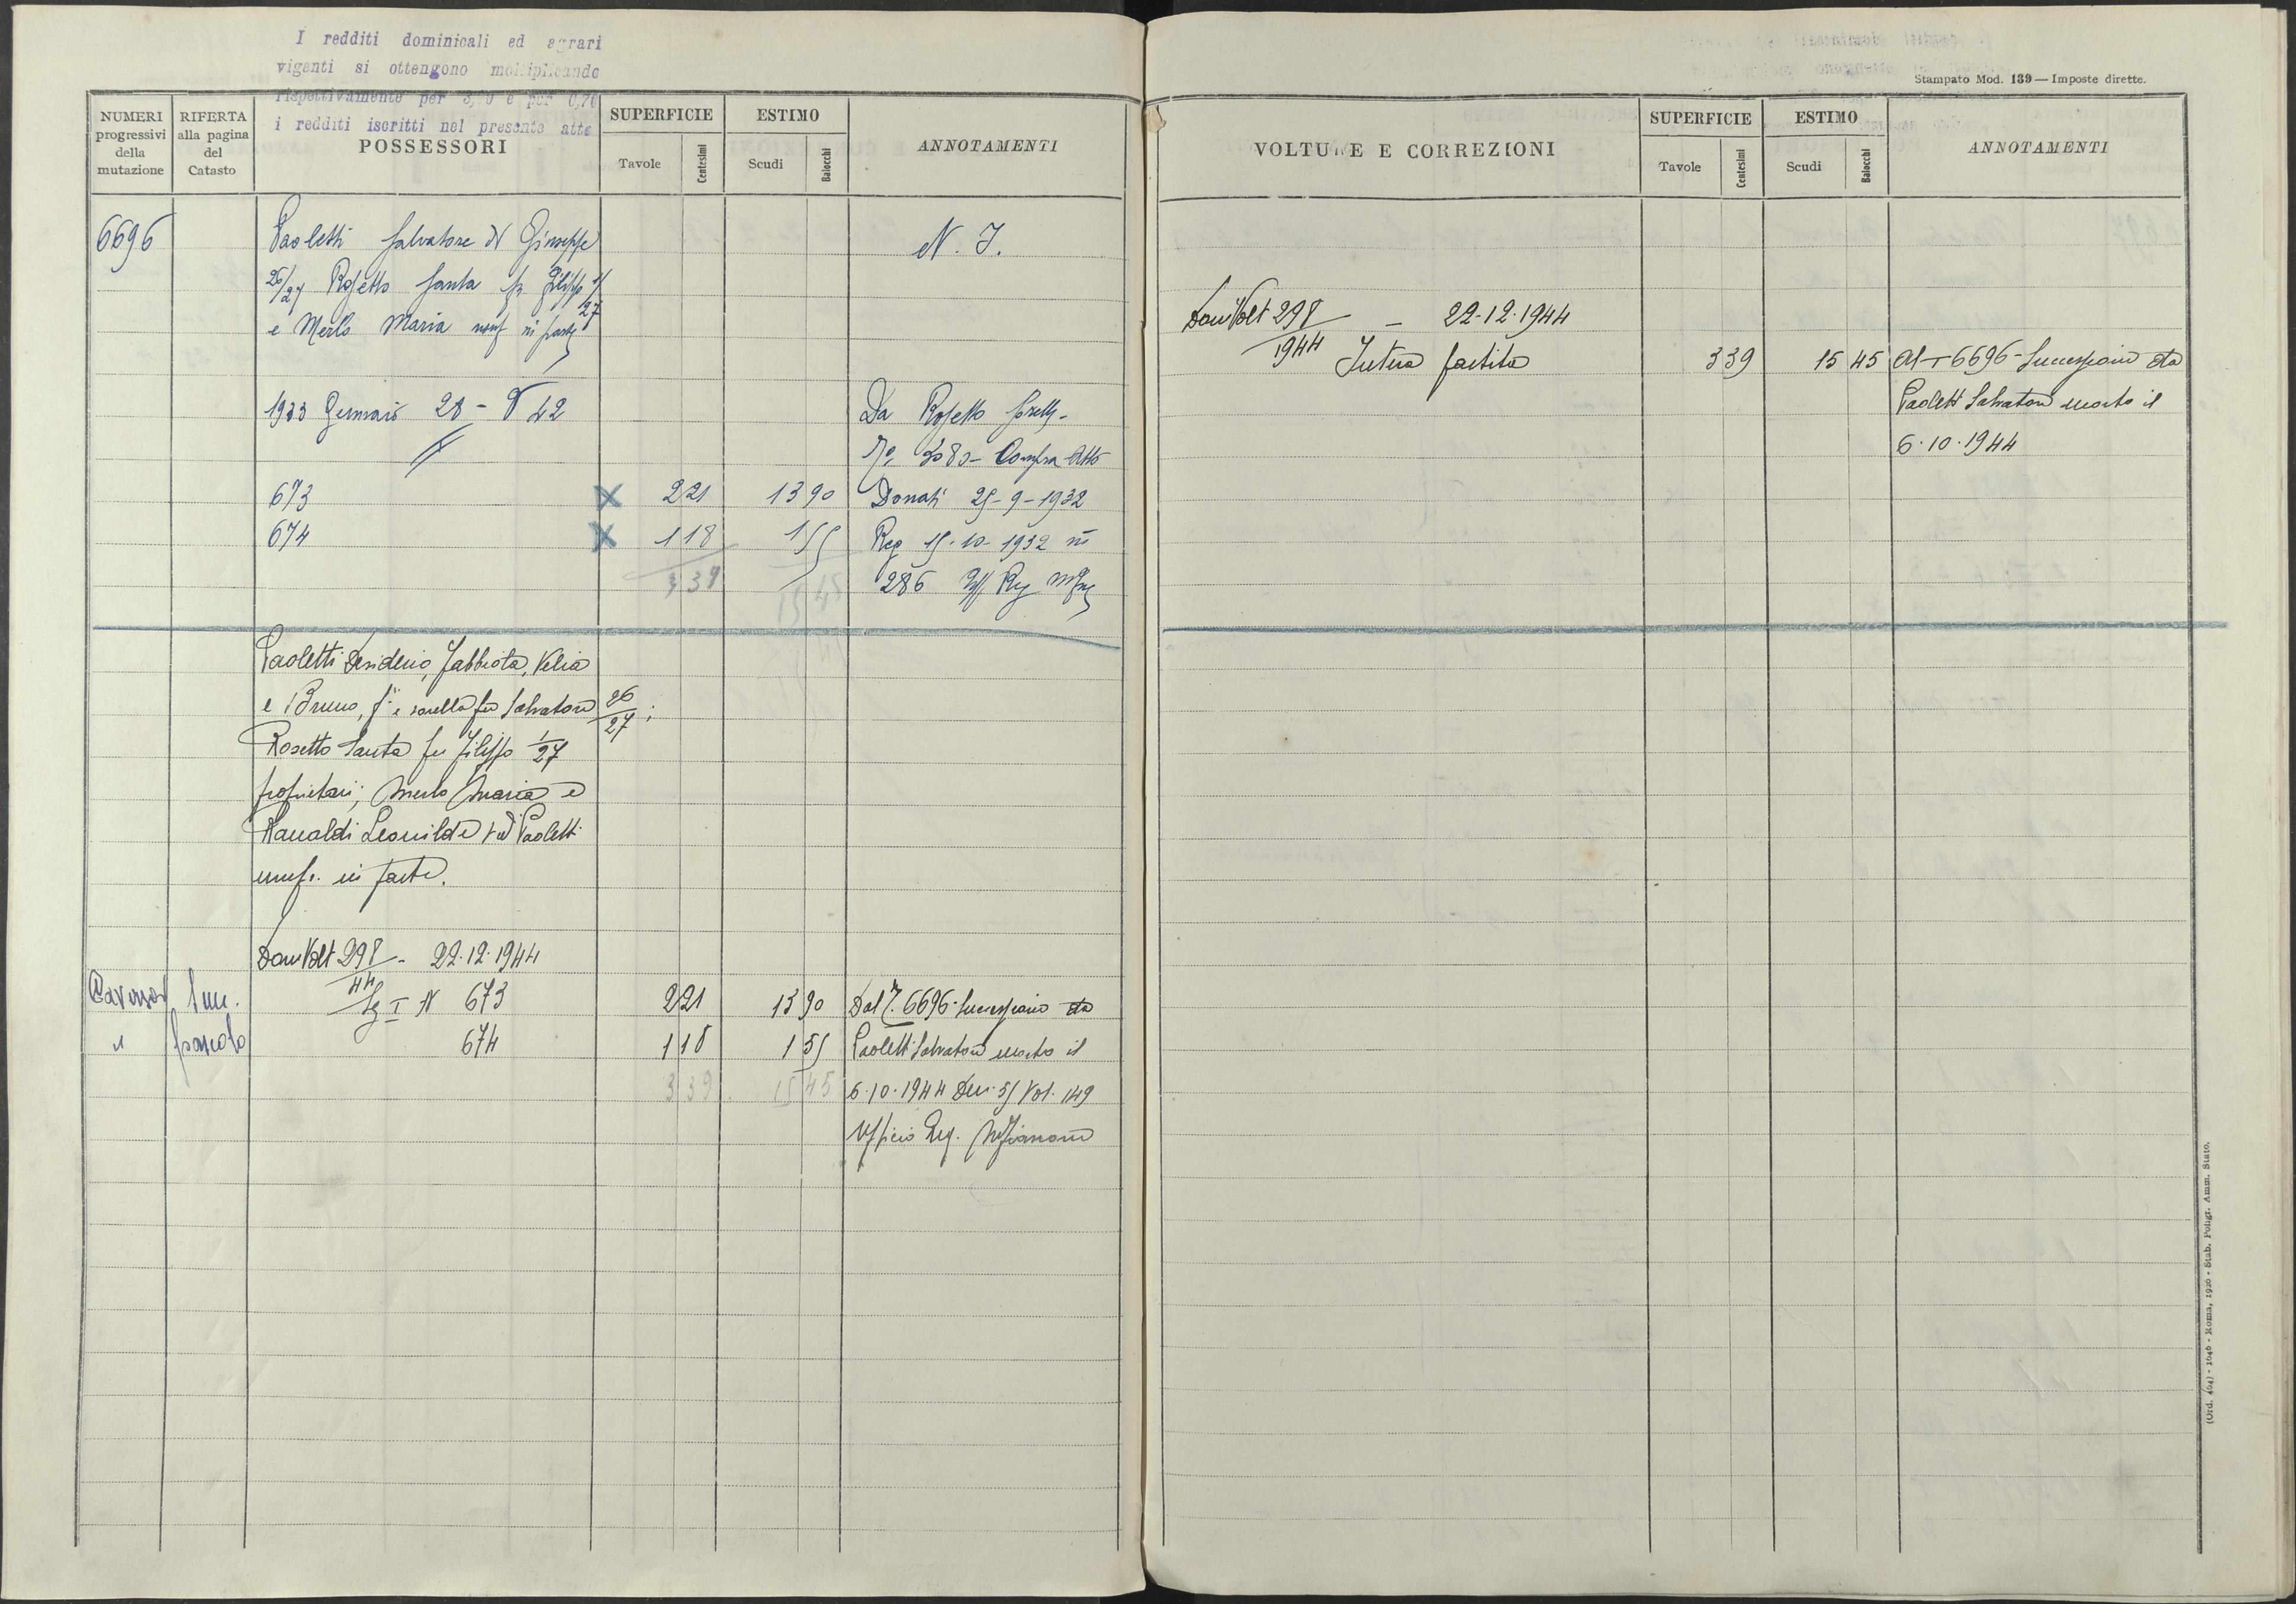 I redditi dominicali ed agrari
vigenti si ottengono moltiplicando
rispettivamente per 3,20 e per 0,70
i redditi iscritti nel presente atto
Stampato Mod. 139 — Imposte dirette.
NUMERI progressivi della mutazione
RIFERTA alla pagina del Catasto
POSSESSORI
SUPERFICIE
Tavole
Centesimi
ESTIMO
Scudi
Baiocchi
ANNOTAMENTI
6696
Paoletti Salvatore di Giuseppe
26/27 Rosetto Santa fu Filippo 1/27
e Merlo Maria usuf in parte
N. I.
1933 Gennaio 28 - V 42
Da Rosetto
Compra Atto
673 221 13 90 Donati 25-9-1932
674 118 1 55 Reg 15-10-1932 ni
339 15 45 286 Uff Reg
Paoletti Desiderio, Fabbiola, Velia
e Bruno, f.lli e sorella fu Salvatore 26/27;
Rosetto Santa fu Filippo 1/27
proprietari; Merlo Maria e
Ranaldi Leonilde ved Paoletti
usuf. in parte.
Dom Volt 298/44 - 22.12.1944
Sez I N 673 221 13 90 Dal T. 6696 - Successione da
" pascolo 674 118 1 55 Paoletti Salvatore morto il
339 15 45 6.10.1944 Den. 51 Vol. 149
Ufficio Reg.
VOLTURE E CORREZIONI
SUPERFICIE
Tavole
Centesimi
ESTIMO
Scudi
Baiocchi
ANNOTAMENTI
Dom Volt 298/1944 - 22.12.1944
Intera partita 339 15 45 Al T 6696 - Successione da
Paoletti Salvatore morto il
6.10.1944
(Ord. 404) - 1046 - Roma, 1926 - Stab. Poligr. Amm. Stato.